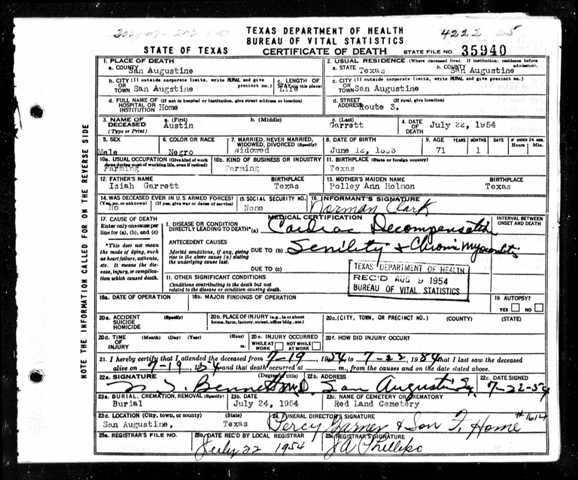 TEXAS DEPARTMENT OF HEALTH
BUREAU OF VITAL STATISTICS
STATE OF TEXAS
CERTIFICATE OF DEATH
STATE FILE NO. 35940
NOTE THE INFORMATION CALLED FOR ON THE REVERSE SIDE
1. PLACE OF DEATH
a. COUNTY
San Augustine
2. USUAL RESIDENCE (Where deceased lived. If institution: residence before admission).
a. STATE
Texas
b. COUNTY
San Augustine
b. CITY (If outside corporate limits, write RURAL and give precinct no.)
OR
TOWN
San Augstine
c. LENGTH OF
Life
c. CITY (If outside corporate limits, write RURAL and give precinct no.)
OR
TOWN
San Augustine
d. FULL NAME OF (If not in hospital or institution, give street address or location)
HOSPITAL OR
INSTITUTION
Home
d. STREET (If rural, give location)
ADDRESS
Route 3.
3. NAME OF
DECEASED
(Type or Print)
a. (First)
Austin
b. (Middle)
c. (Last)
Garrett
4. DATE
OF
DEATH
July 22, 1954
5. SEX
Male
6. COLOR OR RACE
Negro
7. MARRIED, NEVER MARRIED,
WIDOWED, DIVORCED (Specify)
Widowed
8. DATE OF BIRTH
9. AGE
71
1
10a. USUAL OCCUPATION (Give kind of work
done during most of working life, even if retired)
Farming
10b. KIND OF BUSINESS OR INDUSTRY
Farming
11. BIRTHPLACE (State or foreign country)
Texas
12. FATHER'S NAME
Isiah Garrett
BIRTHPLACE
Texas
13. MOTHER'S MAIDEN NAME
Polley Ann Holmon
BIRTHPLACE
Texas
14. WAS DECEASED EVER IN U.S. ARMED FORCES?
(If yes, give war or dates of service)
No
15. SOCIAL SECURITY NO.
None
16. INFORMANT'S SIGNATURE
Norman Clark
17. CAUSE OF DEATH
Enter only one cause per
line for (a), (b), and (c)
*This does not mean
the mode of dying, such
as heart failure, asthenia,
etc. It means the disease,
injury, or complication
which caused death.
MEDICAL CERTIFICATION
I. DISEASE OR CONDITION
DIRECTLY LEADING TO DEATH*(a)
Cardiac Decompensation
INTERVAL BETWEEN
ONSET AND DEATH
ANTECEDENT CAUSES
Morbid conditions, if any, giving
rise to the above cause (a) stating
the underlying cause last.
DUE TO (b)
Senility & Chronic Myocarditis
DUE TO (c)
II. OTHER SIGNIFICANT CONDITIONS
Conditions contributing to the death but not
related to the disease or condition causing death.
TEXAS DEPARTMENT OF HEALTH
REC'D AUG 9 1954
BUREAU OF VITAL STATISTICS
18a. DATE OF OPERATION
18b. MAJOR FINDINGS OF OPERATION
19. AUTOPSY?
YES NO
20a. ACCIDENT (Specify)
SUICIDE
HOMICIDE
20b. PLACE OF INJURY (e.g., in or about
home, farm, factory, street, office bldg., etc.)
20c. (CITY, TOWN, OR PRECINCT NO.) (COUNTY) (STATE)
20d. TIME (Month) (Day) (Year) (Hour)
OF
INJURY
20e. INJURY OCCURRED
WHILE AT WORK NOT WHILE AT WORK
20f. HOW DID INJURY OCCUR?
21. I hereby certify that I attended the deceased from 7-19 1954 to 7-22 1954 that I last saw the deceased
alive on 7-19 1954 and that death occurred at m., from the causes and on the date stated above.
22a. SIGNATURE
Bennett M.D.
22b. ADDRESS
San Augustine
22c. DATE SIGNED
23a. BURIAL, CREMATION, REMOVAL (Specify)
Burial
23b. DATE
July 24, 1954
23c. NAME OF CEMETERY OR CREMATORY
Red Land Cemetery
23d. LOCATION (City, town, or county) (State)
San Augustine, Texas
24. FUNERAL DIRECTOR'S SIGNATURE
Percy Garner & Son F. Home
#1614
25a. REGISTRAR'S FILE NO.
25b. DATE REC'D BY LOCAL REGISTRAR
July 22 1954
25c. REGISTRAR'S SIGNATURE